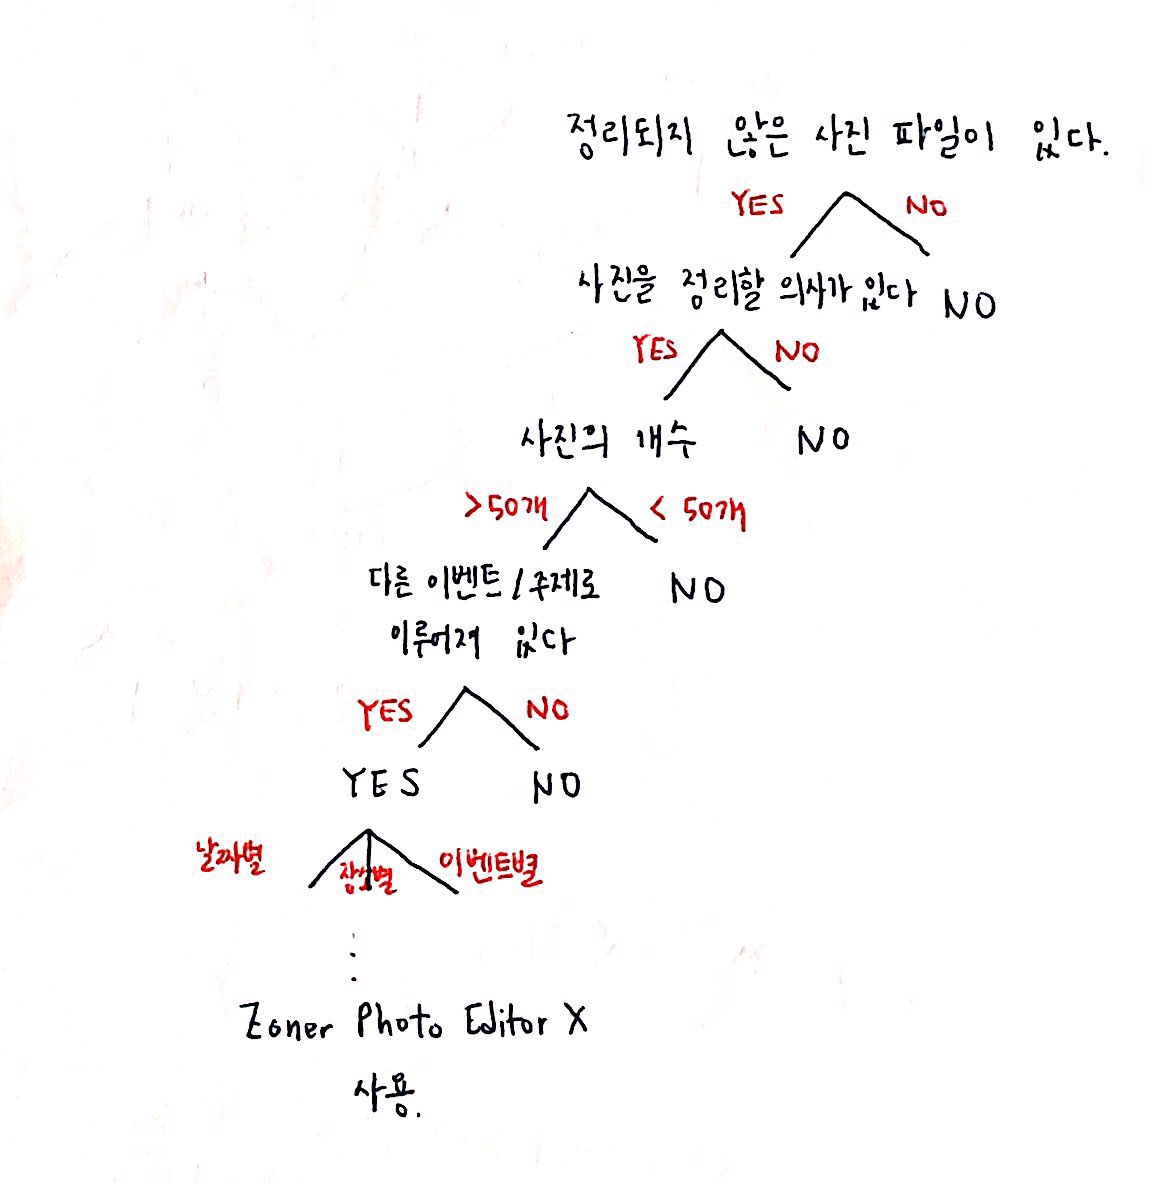 정리되지 않은 사진 파일이 있다.
YES NO
사진을 정리할 의사가 있다 NO
YES NO
사진의 개수 NO
>50개 < 50개
다른 이벤트 / 주제로 NO
이루어져 있다
YES NO
YES NO
날짜별 장소별 이벤트별
Zoner Photo Editor X
사용.